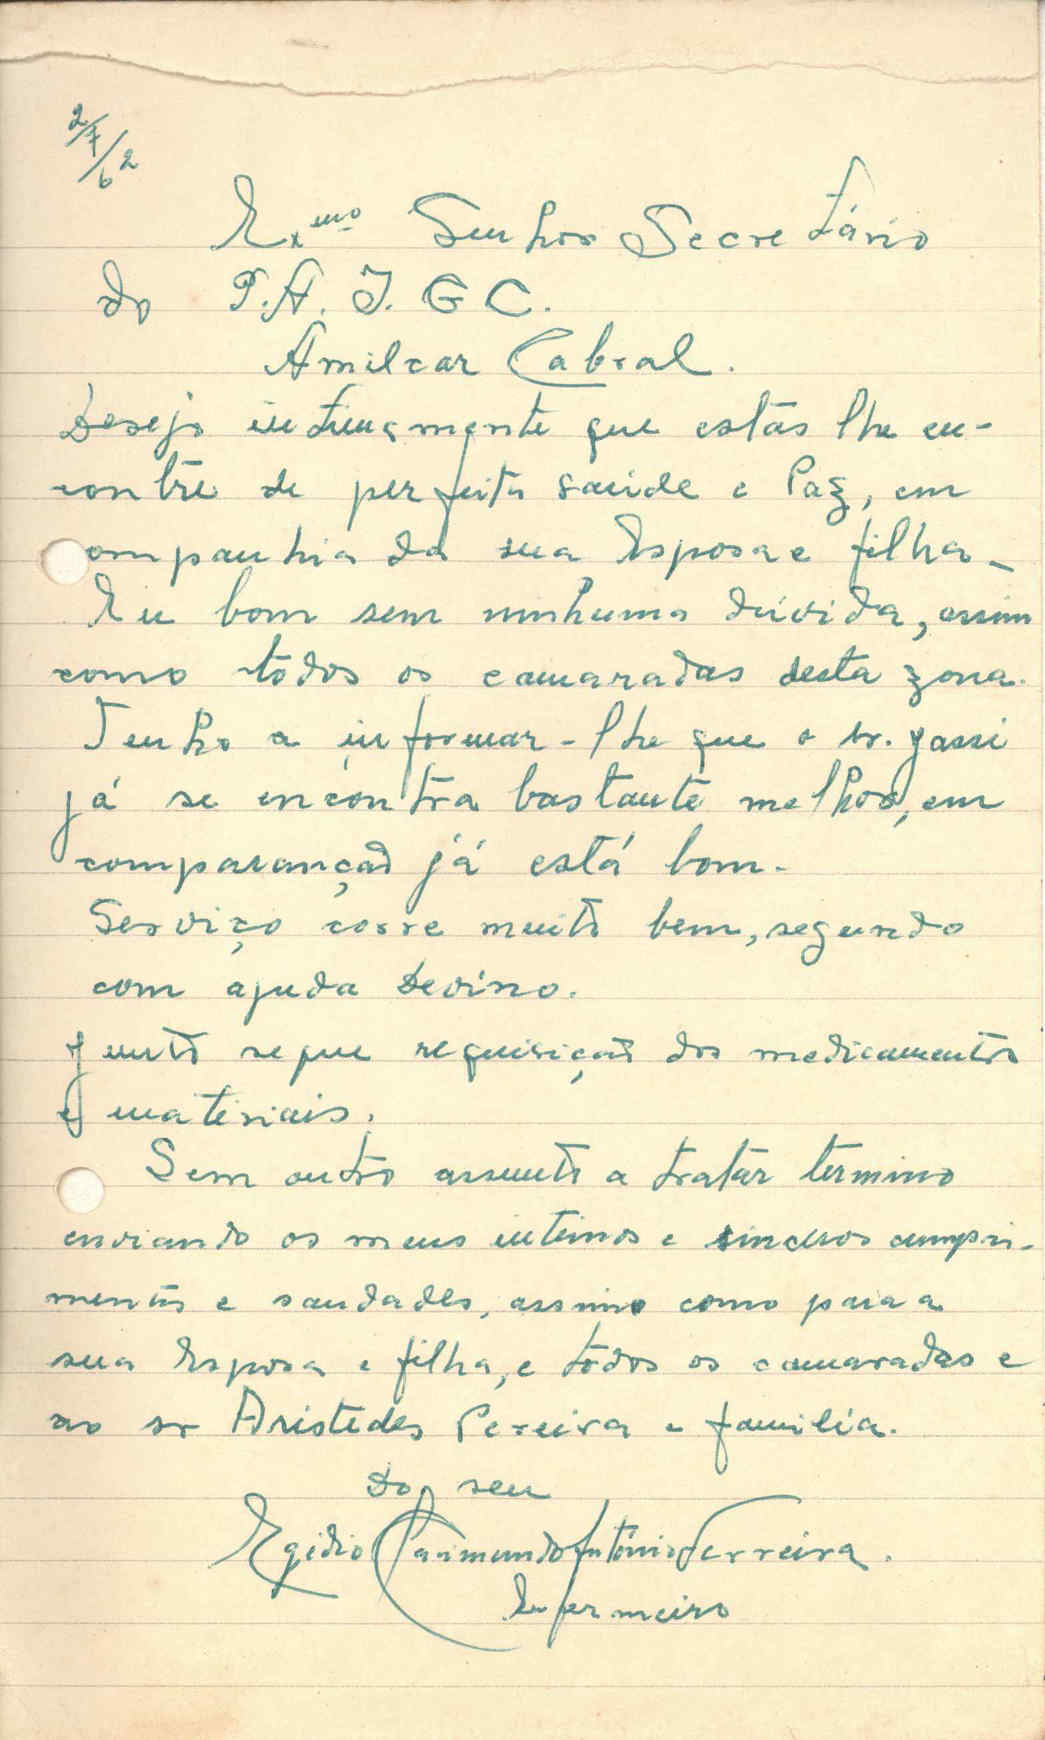 2/7/62
Exmo Senhor Secretário
do P.A.I.GC.
Amilcar Cabral.
Desejo intimamente que estas lhe en-
contre de perfeita saúde e Paz, em
companhia da sua Esposa e filha_
Eu bom sem ninhuma dúvida, assim
como todos os camaradas desta zona.
Tenho a informar-lhe que o sr. gassi
já se encontra bastante melhor, em
comparançaõ já está bom.
Serviço corre muito bem, segundo
com ajuda Devino.
Junto segue requisiçaõ dos medicamentos
e materiais.
Sem outro assunto a tratar termino
enviando os meus intimos e sinceros cumpri-
mentos e saudades, assimo como para a
sua Esposa e filha, e todos os camaradas e
ao sr Aristedes Pereira e familia.
Do seu
Egidio Raimundo António Ferreira.
Enfermeiro